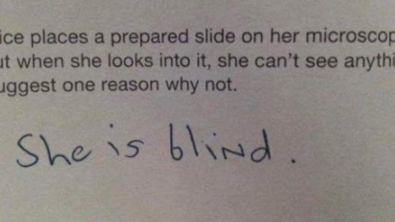 ice places a prepared slide on her microscop
ut when she looks into it, she can't see anythi
uggest one reason why not.
She is blind.